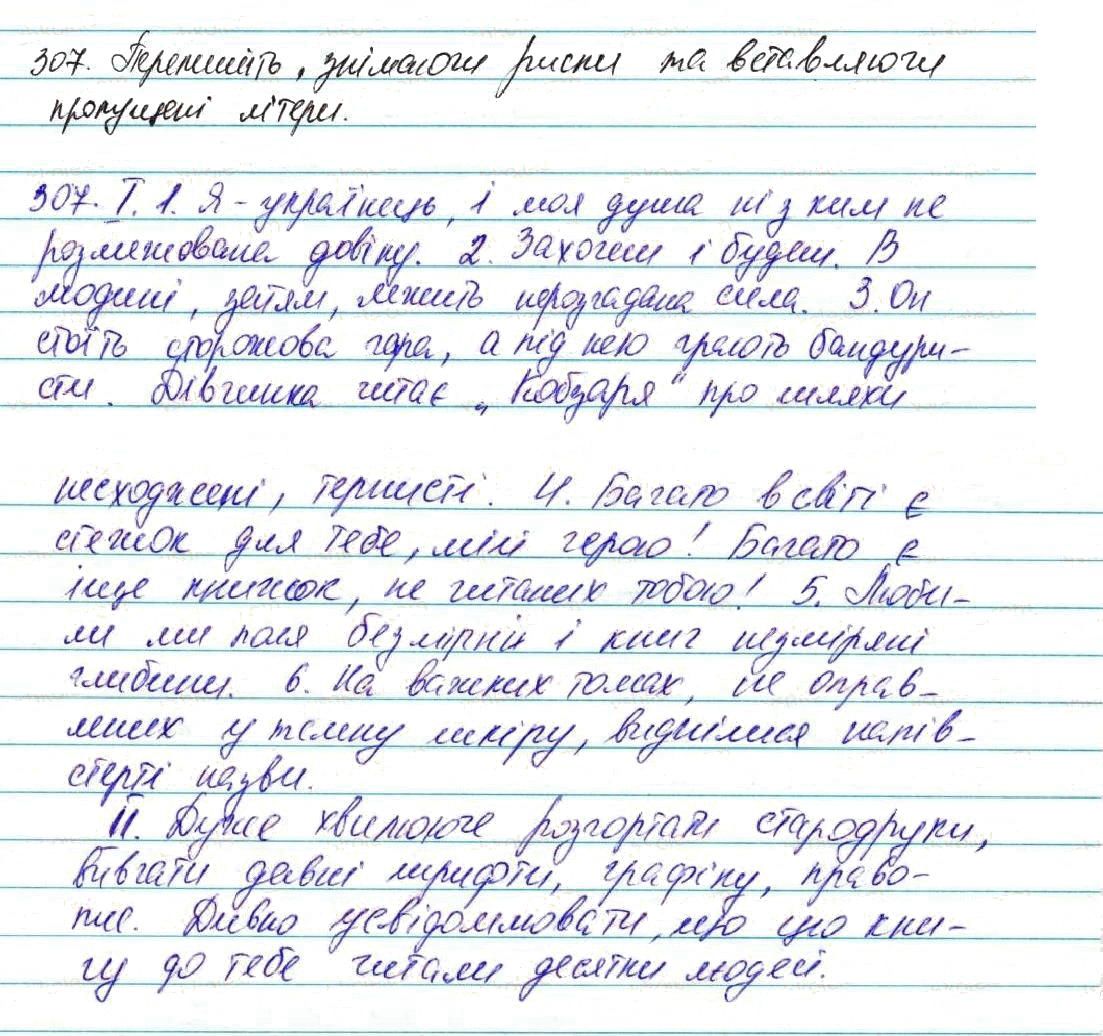 307. Перепишіть, знімаючи риски та вставляючи
пропущені літери.
307. І. 1. Я - українець, і моя душа ні з ким не
розмежована довіку. 2. Захочеш і будеш. В
людині, затям, лежить нерозгадана сила. 3. Он
стоїть сторожова гора, а під нею грають бандури-
сти. Дівчинка читає „Кобзаря" про шляхи
несходжені, тернисті. 4. Багато в світі є
стежок для тебе, мій герою! Багато є
іще книжок, не читаних тобою! 5. Люби-
ли ми поля безмірній і книг незміряні
глибини. 6. На важких томах, не оправ-
лених у темну шкіру, виднілися напів-
стерті назви.
ІІ. Дуже хвилююче розгортати стародруки,
вивчати давні шрифти, графіку, право-
пис. Дивно усвідомлювати, що цю кни-
гу до тебе читали десятки людей.